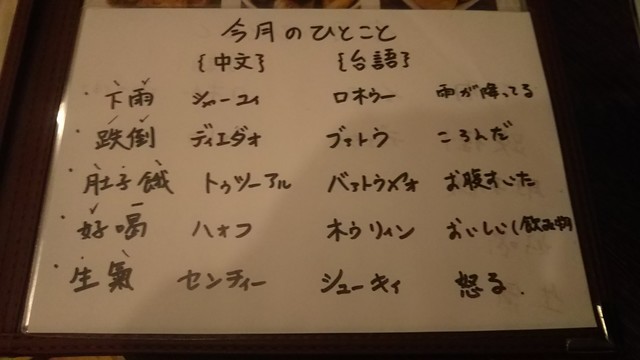 今月のひとこと
{中文} {台語}
・下雨 シャーユィ ロホゥー 雨が降ってる
・跌倒 ディエダオ ブァトウ ころんだ
・肚子餓 トゥツーアル バァトウイオ お腹すいた
・好喝 ハオフ ホウリィン おいしい(飲み物
・生氣 センティー シューキィ 怒る.